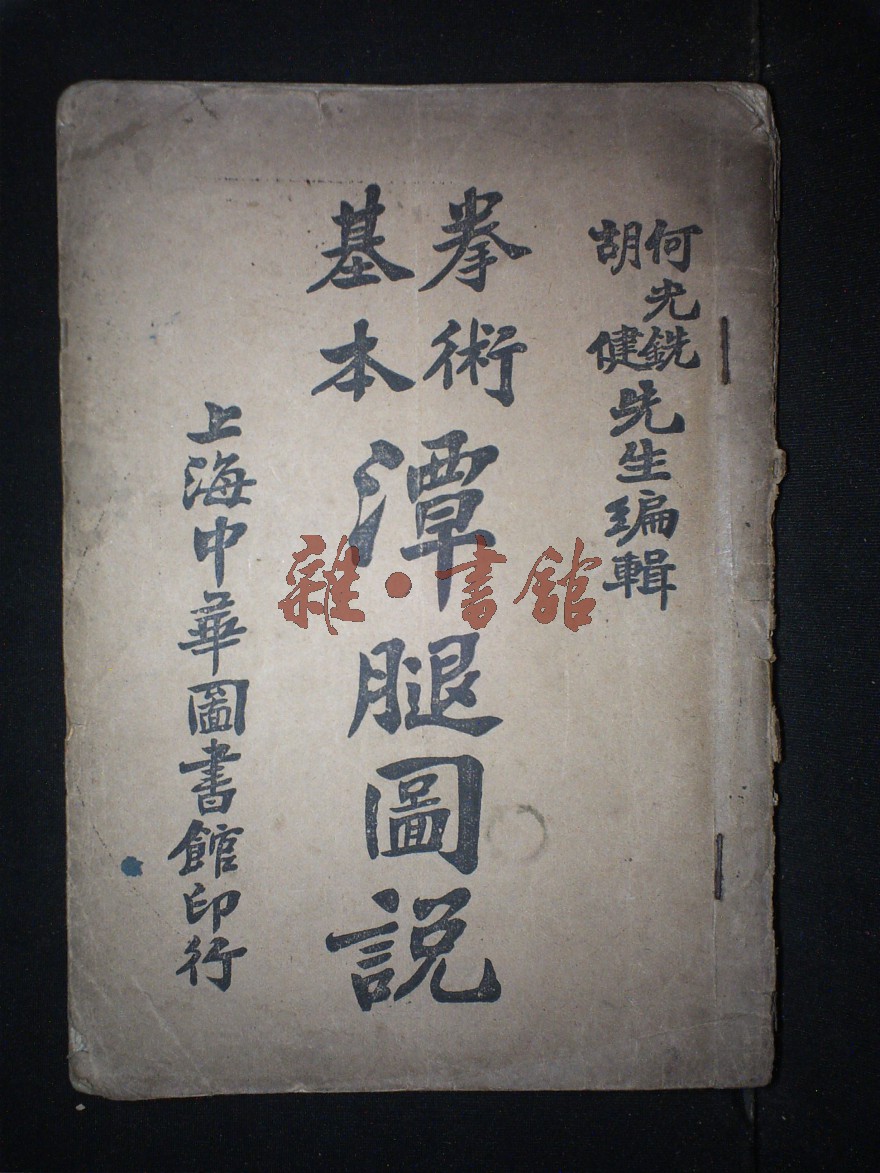 何光銑
胡健
先生編輯
拳術
基本
潭腿圖説
上海中華圖書館印行
雜·書館